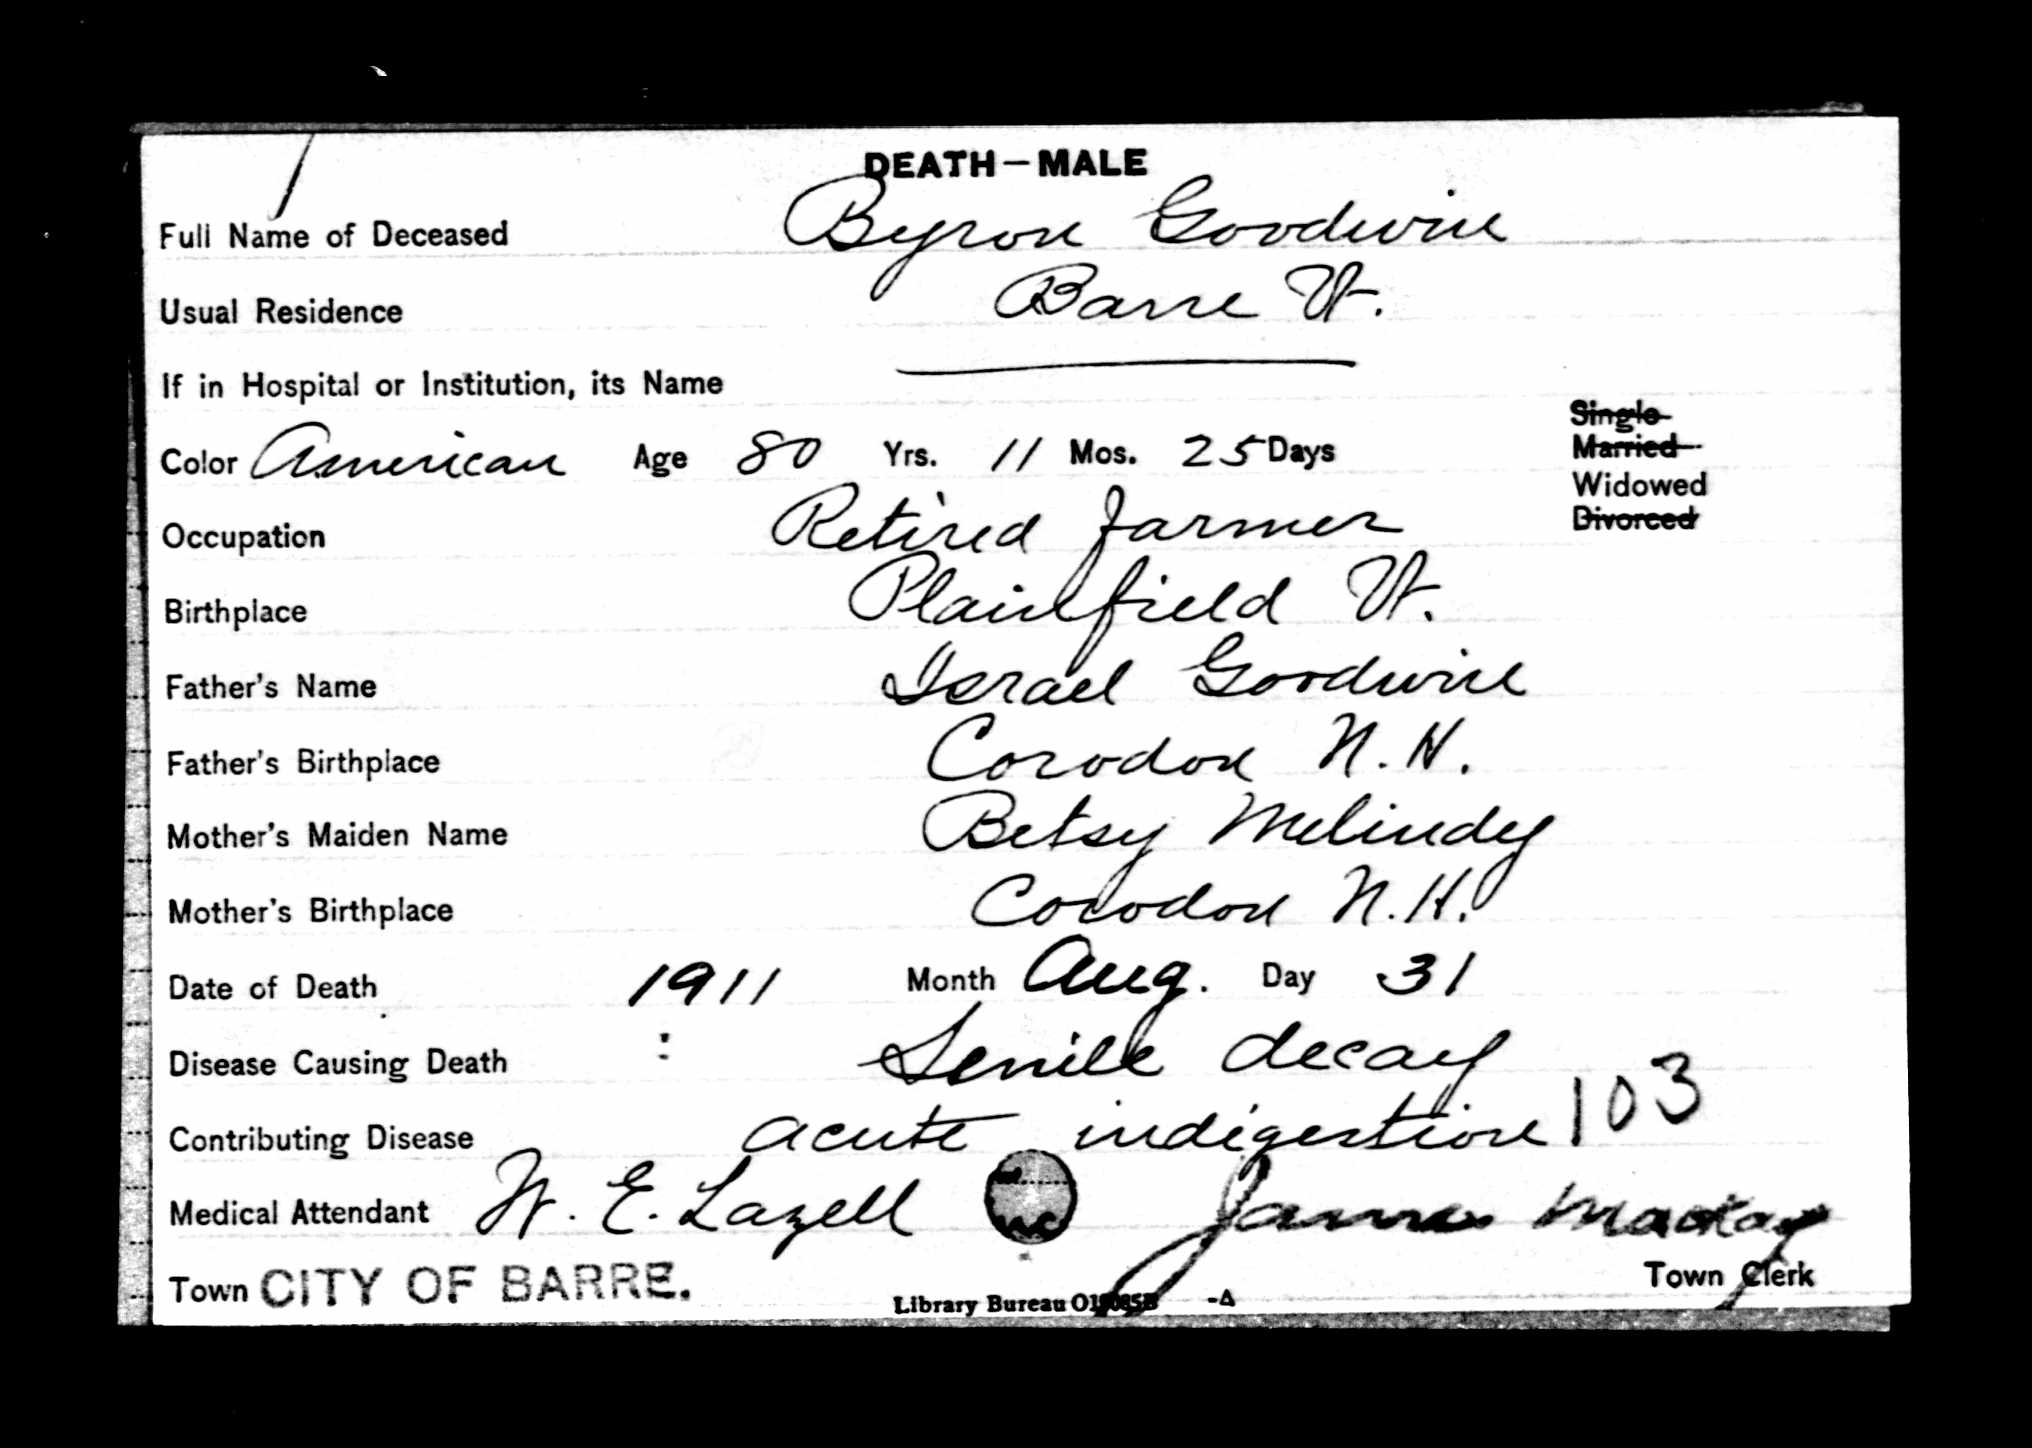 DEATH — MALE
Full Name of Deceased Byron Goodwin
Usual Residence Barre Vt.
If in Hospital or Institution, its Name
Color American Age 80 Yrs. 11 Mos. 25 Days
Single
Married
Widowed
Divorced
Occupation Retired farmer
Birthplace Plainfield Vt.
Father's Name Israel Goodwin
Father's Birthplace Corodon N. H.
Mother's Maiden Name Betsy Melindy
Mother's Birthplace Corodon N. H.
Date of Death 1911 Month Aug. Day 31
Disease Causing Death Senile decay
Contributing Disease acute indigestion 103
Medical Attendant W. E. Lazell James Mackay
Town CITY OF BARRE. Town Clerk
Library Bureau